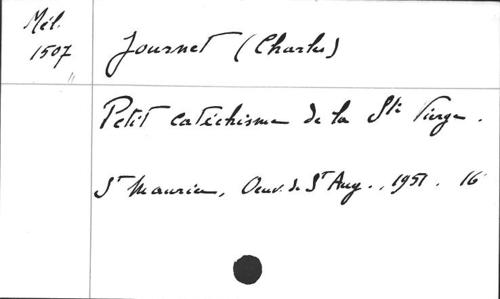 Mél.
1507
"
Journet (Charles)
Petit catéchisme de la Ste Vierge.
St Maurice, Oeuv. de St Aug., 1951. 16